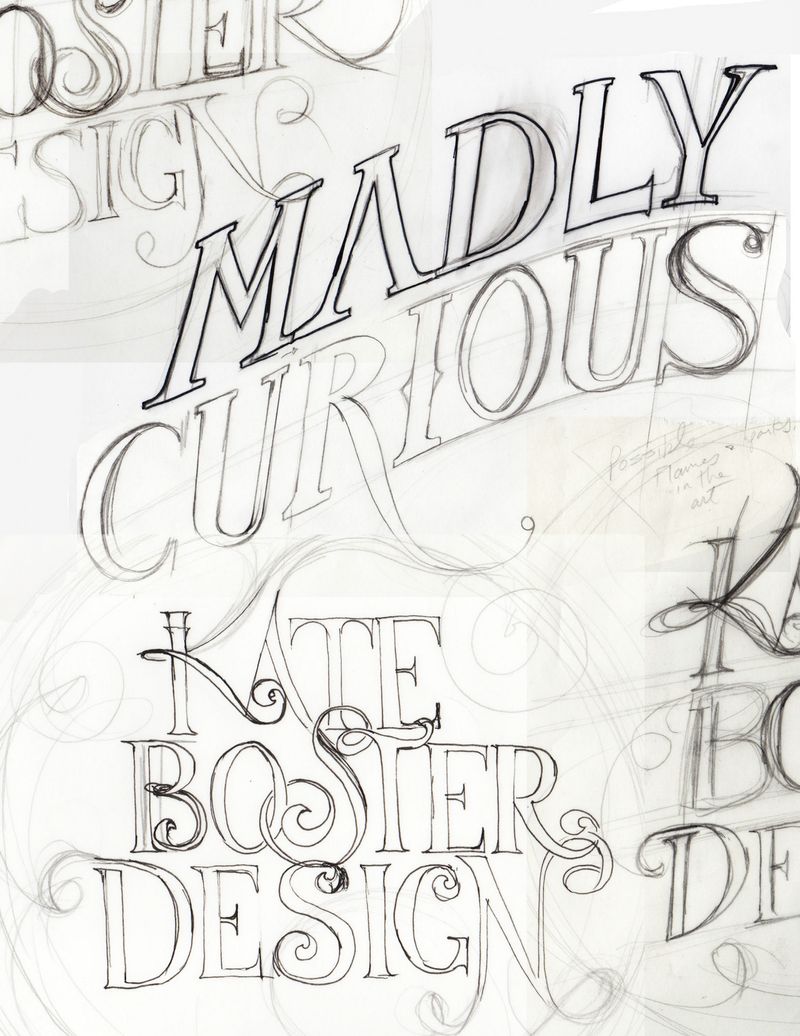 OSTER
ESIGN
MADLY
CURIOUS
Possible
Flames &
in the
art
KATE
BOSTER
DESIGN
K
BO
DE